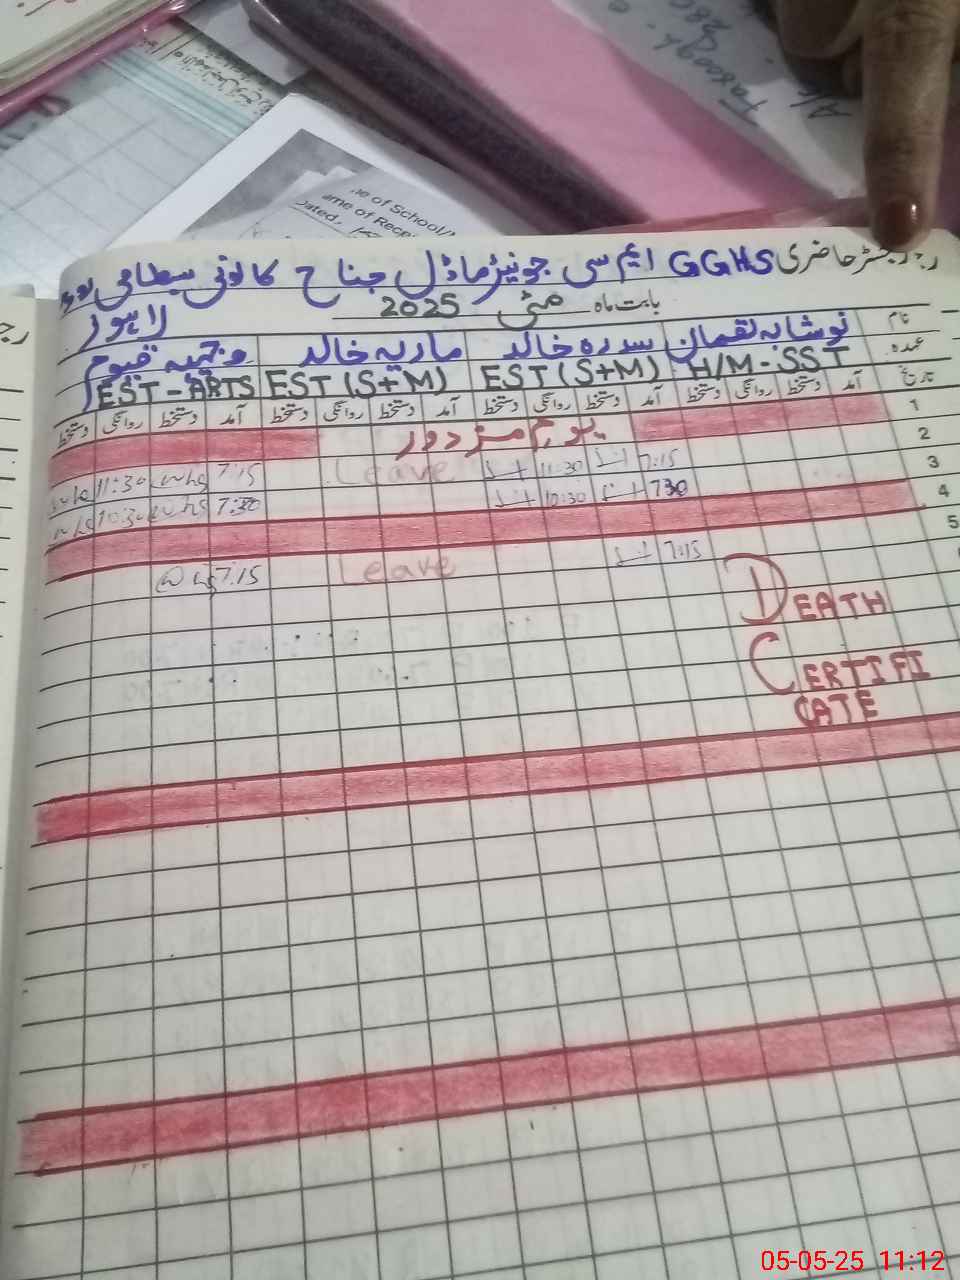 رجسٹر حاضری GGHS ایم سی جونیئر ماڈل جناح کالونی بسطامی روڈ
لاہور
بابت ماہ مئی 2025
نام نوشابہ لقمان سدرہ خالد ماریہ خالد وجیہہ قیوم
عہدہ H/M - SST EST (S+M) EST (S+M) EST - ARTS
تاریخ آمد دستخط روانگی دستخط آمد دستخط روانگی دستخط آمد دستخط روانگی دستخط آمد دستخط روانگی دستخط
1 یوم مزدور
2 7:15 11:30 Leave 7:15 11:30
3 730 10:30 7:30 10:30
4
5 7:15 Leave 7:15
DEATH
CERTIFI
CATE
of School/
ame of Rece
Dated.
05-05-25 11:12